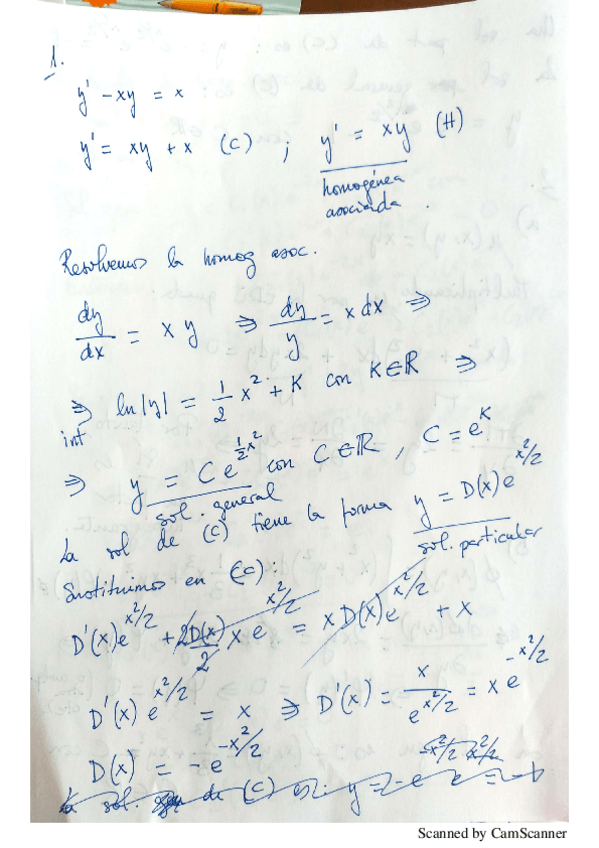 1.
y' - xy = x
y' = xy + x (C) ; y' = xy (H)
homogénea
asociada.
Resolvemos la homog asoc.
dy/dx = x y ⇒ dy/y = x dx ⇒
⇒ int ln|y| = 1/2 x² + K con K∈ℝ ⇒
⇒ y = C e^{1/2 x²} con C∈ℝ, C = e^K
sol. general
La sol de (C) tiene la forma y = D(x) e^{x²/2}
sol. particular
Sustituimos en (C):
D'(x) e^{x²/2} + 2D(x)/2 x e^{x²/2} = x D(x) e^{x²/2} + x
D'(x) e^{x²/2} = x ⇒ D'(x) = x/e^{x²/2} = x e^{-x²/2}
D(x) = -e^{-x²/2}
sol. de (C) y = -e
Scanned by CamScanner